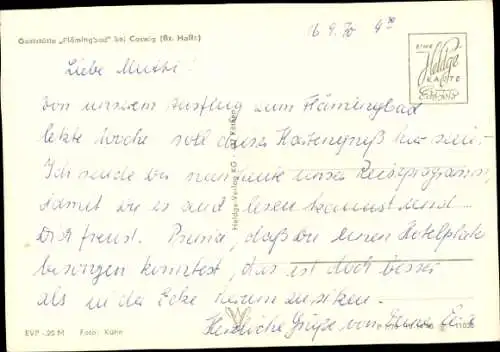 Gaststätte „Flämingbad" bei Coswig (Bz. Halle)
16.9.70 9 30
EINE
Heldge
KARTE
Echt Foto
Liebe Mutti!
Von unserem Ausflug zum Flämingbad
letzte Woche soll dieser Kartengruß hier sein.
Ich sende Dir nun heute unser Reiseprogramm,
damit Du es auch lesen kannst und ...
Dich freust. Prima, daß Du einen Hotelplatz
besorgen konntest, das ist doch besser
als in der Ecke herum zu sitzen.
Herzliche Grüße von Deiner
Heldge-Verlag KG
EVP -,20 M Foto: Kühn